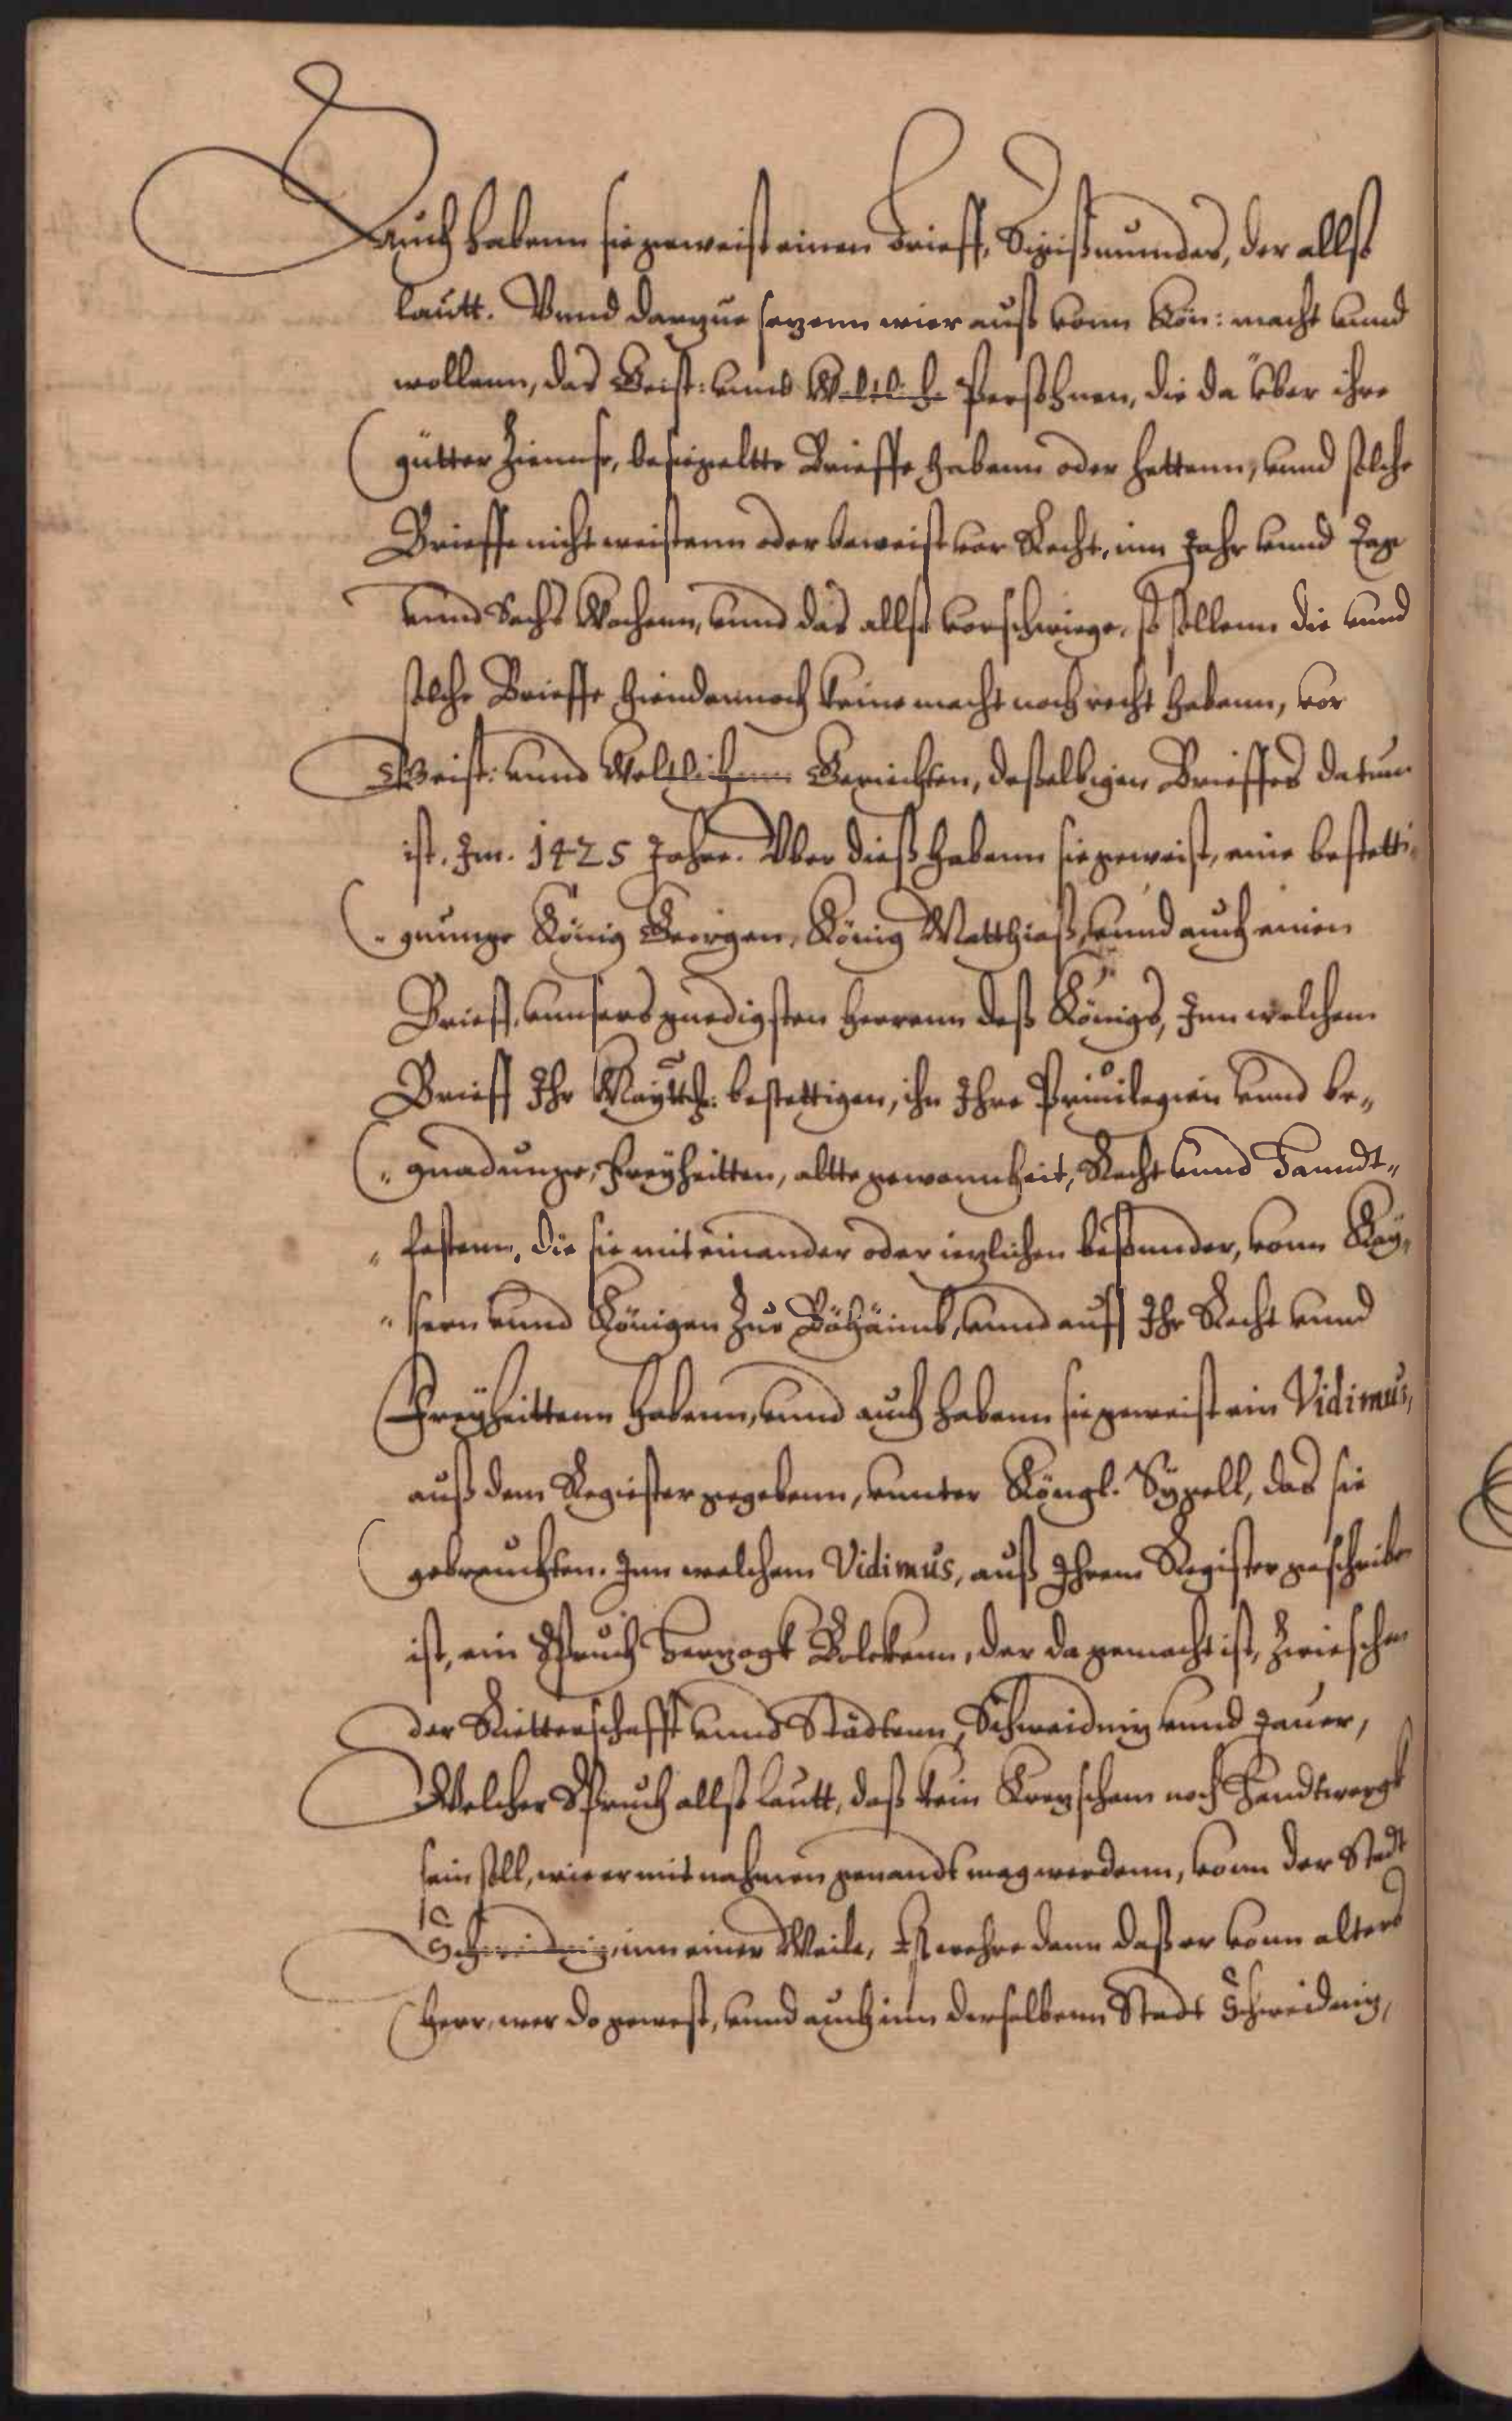 Auch habenn sie geweist einen Brieff, Sigißmundes, der allso
lautt. Vnnd darzue sezenn wier auß vonn Kön: macht vnnd
wollenn, das Geist: vnnd Weltliche Perßohnen, die da über ihre
gütter Zinnse, besiegeltte Brieffe habenn oder hettenn, vnnd solche
Brieffe nicht weistenn oder beweist vor Recht, inn Jahr vnnd Tage
vnnd Sechs Wochenn, vnnd das allso vorschwiege, so sollenn die vnnd
solche Brieffe hiendannoch keine macht noch recht habenn, vor
Geist: vnnd Weltlichenn Gerichten, deßelbigen Brieffes datum
ist. Im. 1425 Jahre. Vber dieß habenn sie geweist, eine bestetti¬
„gunge König Georgen, König Matthiaß, vnnd auch einen
Brieff, vnnsers gnedigsten Herrenn deß Königs, Inn welchem
Brieff Ihr Mayttl: bestettigen, ihn Ihre Priuilegien vnnd be„
„gnadunge, Freyheitten, altte gewonnheit, Recht vnnd Hanndt„
„festenn, die sie mit einander oder iezlichen beßunder, vonn Kay„
„sern vnnd Königen Zue Böhäimb, vnnd auff Ihr Recht vnnd
Freyheittenn habenn, vnnd auch habenn sie geweist ein Vidimus,
auß dem Register gegebenn, vnnter Köngl. Sygell, das sie
gebrauchten. Inn welchem Vidimus, auß Ihrem Register geschriben
ist, ein Spruch Herzogk Bolckenn, der da gemacht ist, Zwieschen
der Ritterschafft vnnd Städtenn, Schweidniz vnnd Jauer,
Welcher Spruch allso lautt, daß kein Krezscham noch Handtwergk
sein soll, wie er mit nahmen genandt mag werdenn, vonn der Stadt
Schweidniz, inn einer Meile, Es wehre dann daß er vonn alters
Herr, wer do gewest, vnnd auch inn derselbenn Stadt Schweidniz,